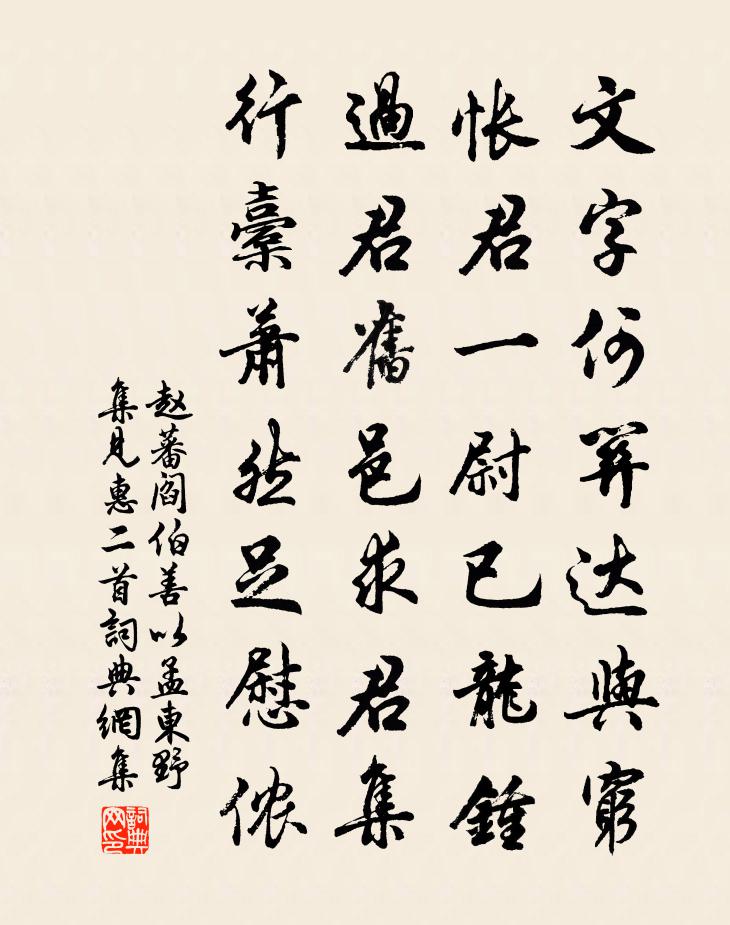 文字何關达與窮
悵君一尉已龍鍾
過君舊邑求君集
行橐蕭然足慰侬
赵蕃阎伯善以孟東野
集見惠二首詞典網集
詞典网印